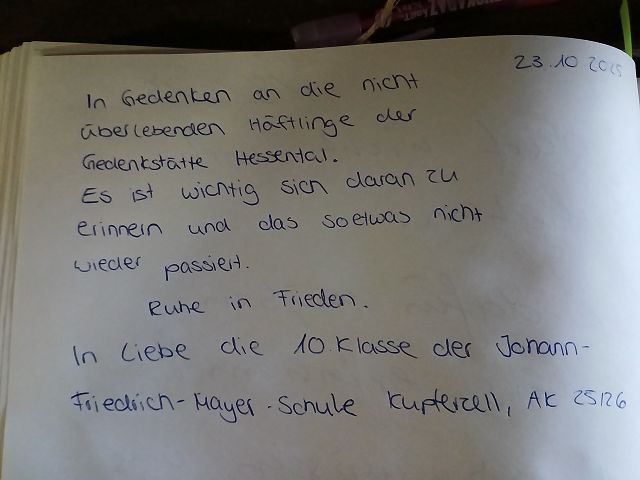 23.10 2025
In Gedenken an die nicht
überlebenden Häftlinge der
Gedenkstätte Hessental.
Es ist wichtig sich daran zu
erinnern und das soetwas nicht
wieder passiert.
Ruhe in Frieden.
In Liebe die 10. Klasse der Johann-
Friedrich-Mayer-Schule Kupferzell, AK 25/26